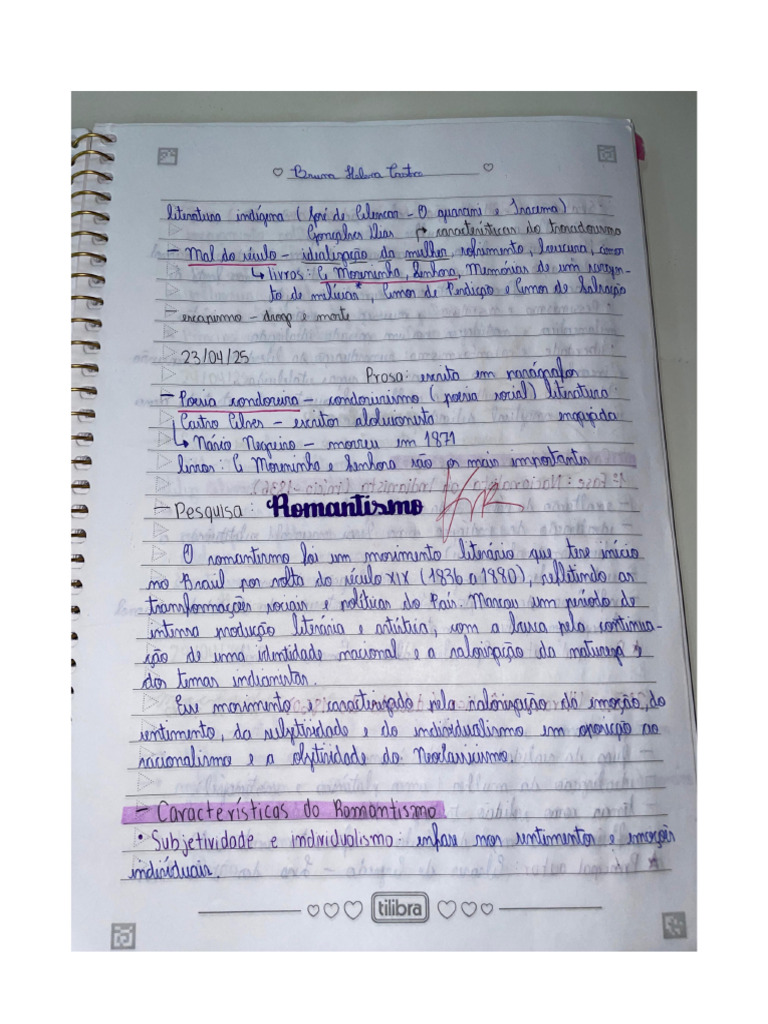 Bruna Helena Castro
literatura indígena (José de Alencar - O guarani e Iracema)
Gonçalves Dias → características do Trovadorismo
- Mal do século - idealização da mulher, sofrimento, loucura, amor
↳ livros: A Moreninha, Senhora, Memórias de um sargen-
to de milícias*, Amor de Perdição e Amor de Salvação
- escapismo - droga e morte
23/04/25
Prosa: escrita em parágrafos
- Poesia condoreira - condoreirismo (poesia social) literatura
Castro Alves - escritor abolicionista engajada
↳ Návio Negreiro - morreu em 1871
livros: A Moreninha e Senhora são os mais importantes
- Pesquisa: Romantismo
O romantismo foi um movimento literário que teve início
no Brasil por volta do século XIX (1836 a 1880), refletindo as
transformações sociais e políticas do País. Marcou um período de
intensa produção literária e artística, com a busca pela continua-
ção de uma identidade nacional e a valorização da natureza e
dos temas indianistas.
Esse movimento e caracterizado pela valorização da emoção, do
sentimento, da subjetividade e do individualismo em oposição ao
racionalismo e a objetividade do Neoclassicismo.
- Características do Romantismo
• Subjetividade e individualismo: enfase nos sentimentos e emoções
individuais.
tilibra